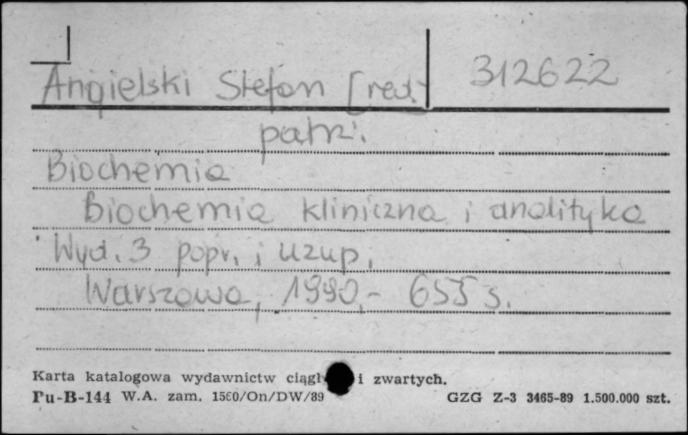 Angielski Stefan [red.] 312622
patrz:
Biochemia
Biochemia kliniczna i analityka
Wyd. 3 popr. i uzup.
Warszawa, 1990,- 655 s.
Karta katalogowa wydawnictw ciągł i zwartych.
Pu-B-144 W.A. zam. 1560/On/DW/89 GZG Z-3 3465-89 1.500.000 szt.